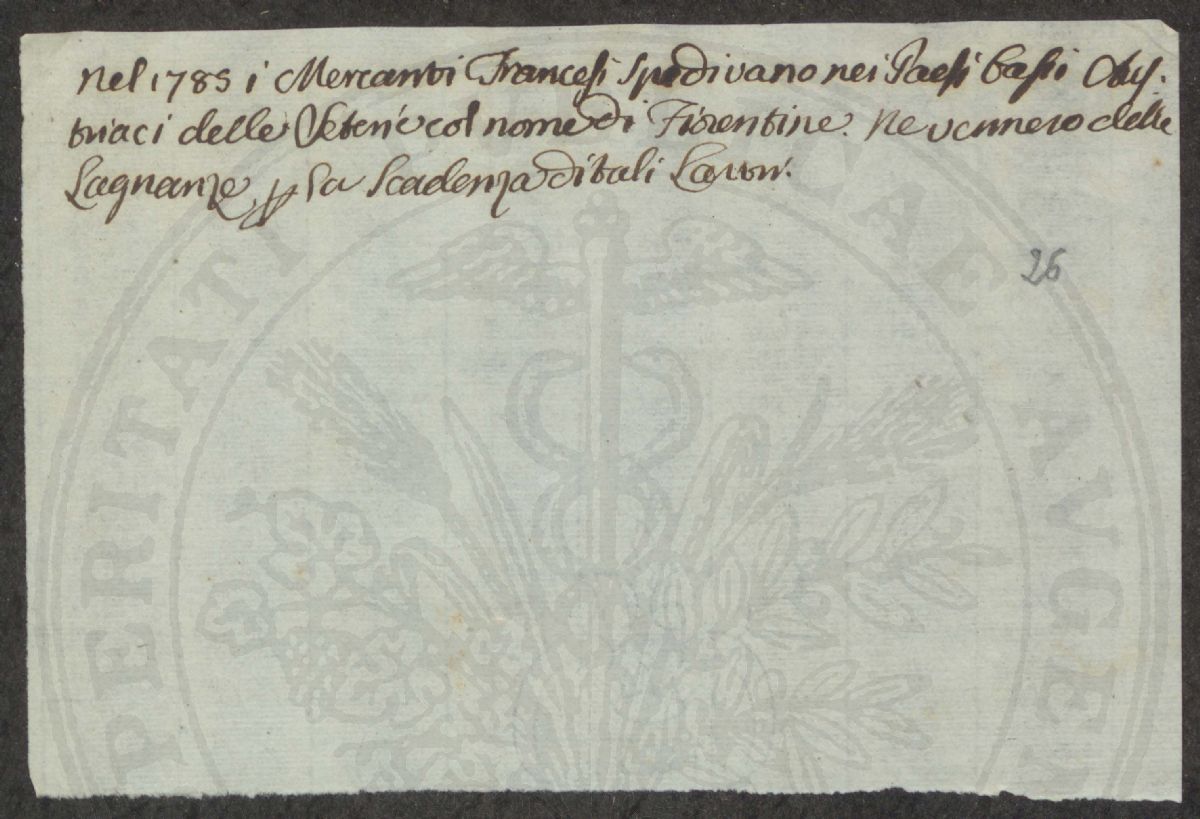 Nel 1785 i Mercanti Francesi spedivano nei Paesi bassi Aus-
triaci delle Seterie col nome di Fiorentine. Ne vennero delle
Lagnanze p la Scadenza di tali Lavori.
26
PERITATI PUBLICAE AUGE